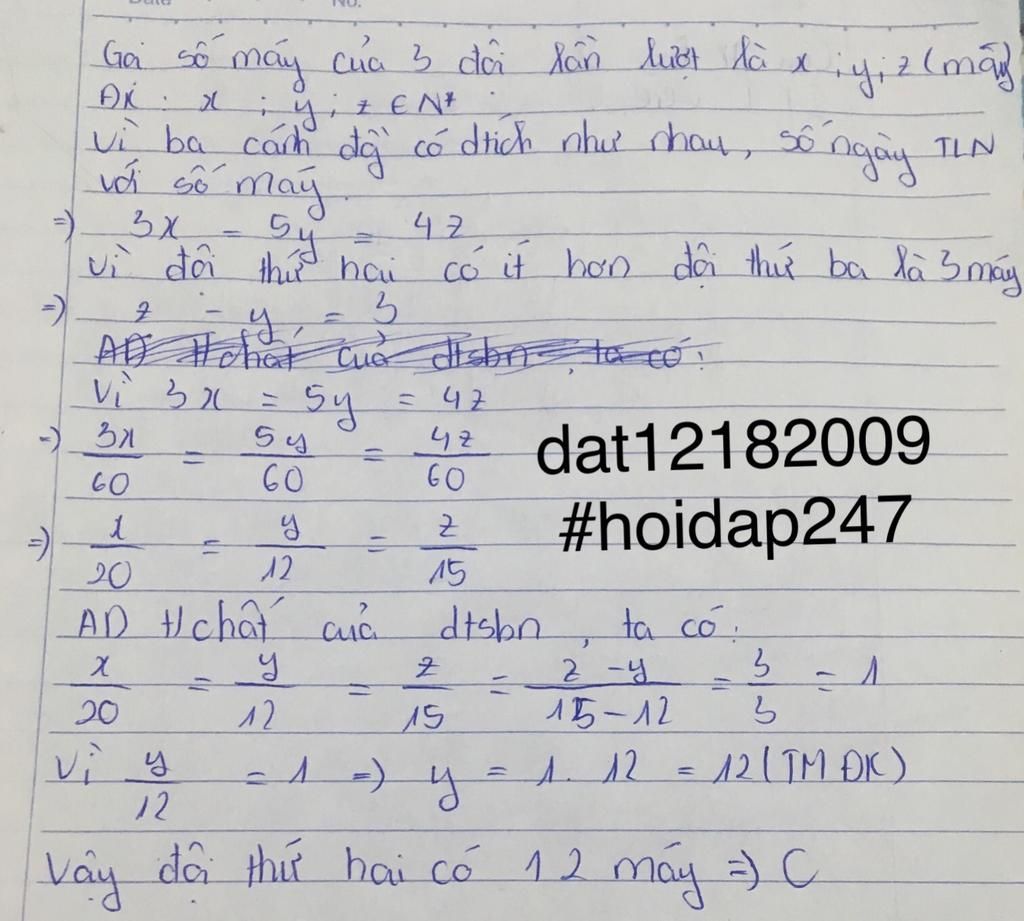 No.
Gọi số máy của 3 đội lần lượt là x ; y ; z (máy)
ĐK : x ; y ; z ∈ N*
Vì ba cánh đồ có dtích như nhau, số ngày TLN
với số máy.
=> 3x = 5y = 4z
Vì đội thứ hai có ít hơn đội thứ ba là 3 máy
=> z - y = 3
AD t/chất của dtsbn, ta có:
Vì 3x = 5y = 4z
=> 3x/60 = 5y/60 = 4z/60
dat12182009
#hoidap247
=> x/20 = y/12 = z/15
AD t/chất của dtsbn, ta có:
x/20 = y/12 = z/15 = z-y/15-12 = 3/3 = 1
Vì y/12 = 1 => y = 1. 12 = 12 (TM ĐK)
Vậy đội thứ hai có 12 máy => C